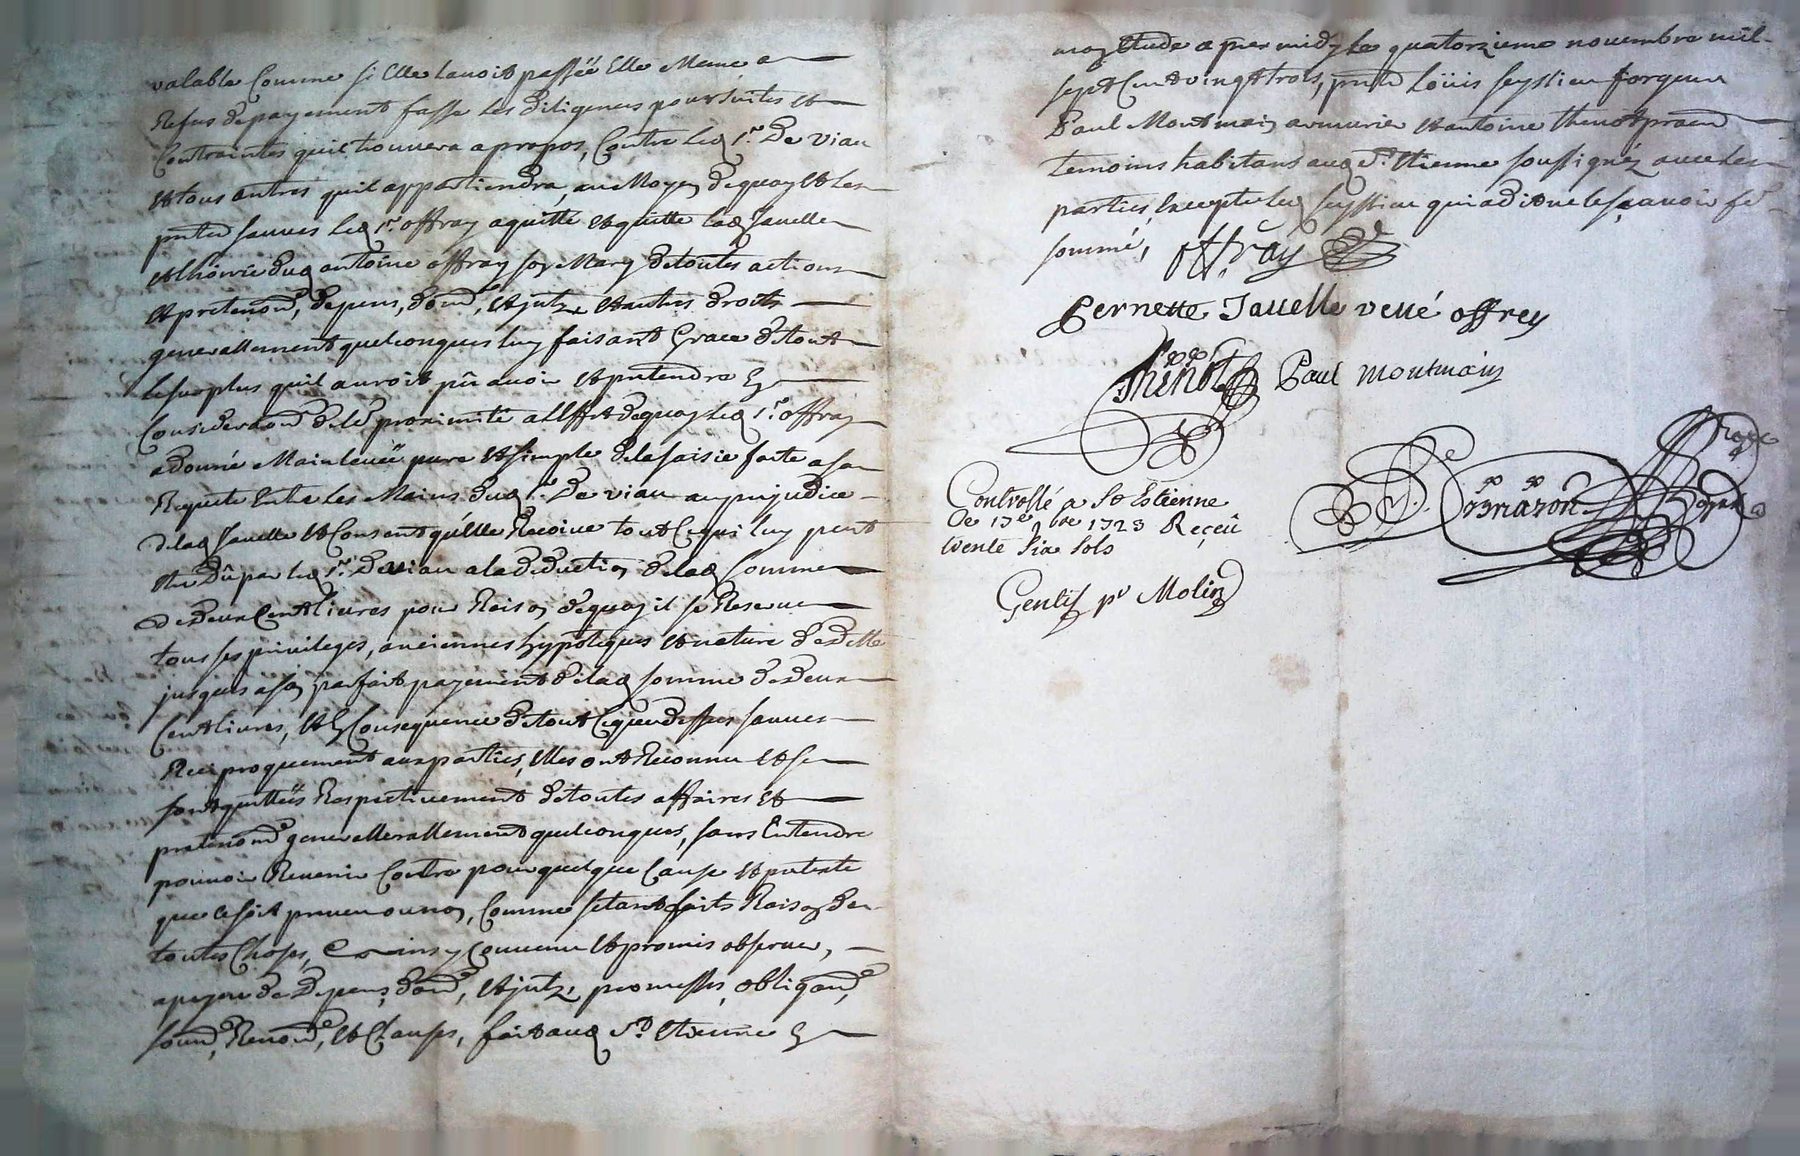 valable Comme si Elle lavoit passée Elle Meme a
Refus depayement fasse Les diligences poursuites Et
Contraintes quil trouvera apropos, Contre led sr. De viau
Et tous autres quil appartiendra, au Moyen dequoy Et Les
pntes sauves led sr. offray aquitté Et quitte lad Jauelle
Et lhoirie dud antoine offray son Mary detoutes actions
Et pretenõns, depens, Et autres droits
generallement quelconques luy faisant Grace detout
lesurplus quil auroit pû avoir Et pretendre En
Consideraõn delad proximité a Leffet dequoy led sr. offray
adonné Mainlevée pure Et simple delasaisie faite a sa
Requete Entre Les Mains dud sr. De viau au prejudice
delad Jauelle Et Consent qu'elle Recoive tout Cequi luy peut
Etre Dû par led sr. De viau ala deduction delad somme
de Deux Cent livres pour Raison dequoy il se Reserve
tous ses privileges, anciennes hypoteques Et nature de Dette
jusques a son parfait payement delad somme de Deux
Cent livres, Et En Consequence detout Cequedessus sauves
Reciproquement aux parties, Elles ont Reconnu Et se
sont quittées Respectivement detoutes affaires Et
pretenõns generallerallement quelconques, sans Entendre
pouvoir Revenir Contre pour quelque Cause Et pretexte
que ce soit preveu ou non, Comme setant faits Raison de
toutes Choses, ainsy Convenu Et promis observer,
apeyne de Depens, Et promesses, obligaõns,
soumõns, Renonõns, Et Clauses, fait aud St. Etienne En
mon Etude apres midy Le quatorzieme novembre mil
sept Cent vingt trois, pnts Loüis seyssieu forgeur
Paul Montmain armurier Et antoine thenot praen
temoins habitans aud St. Etienne soussignéz avec Les
parties Excepté led seyssieu qui adit ne le sçavoir
sommé,
offray
Pernette Jauelle veue offrey
Thenot
Paul montmain
Controllé a St Estienne
Le 17e 9bre 1723 Reçeû
trente Six Sols
Gentil pr Molin